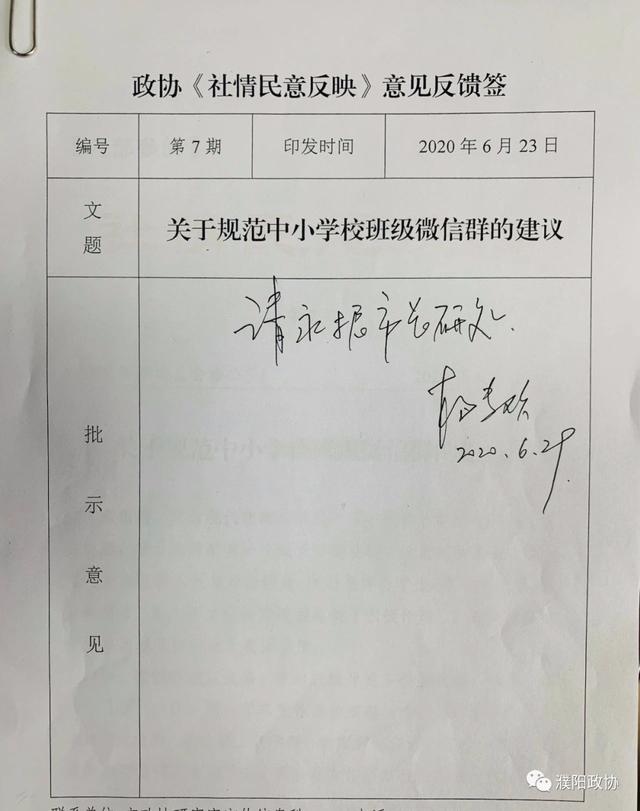 政协《社情民意反映》意见反馈签
编号 第 7 期 印发时间 2020 年 6 月 23 日
文题 关于规范中小学校班级微信群的建议
请永振市长研处.
批示意见
2020.6.29
濮阳政协